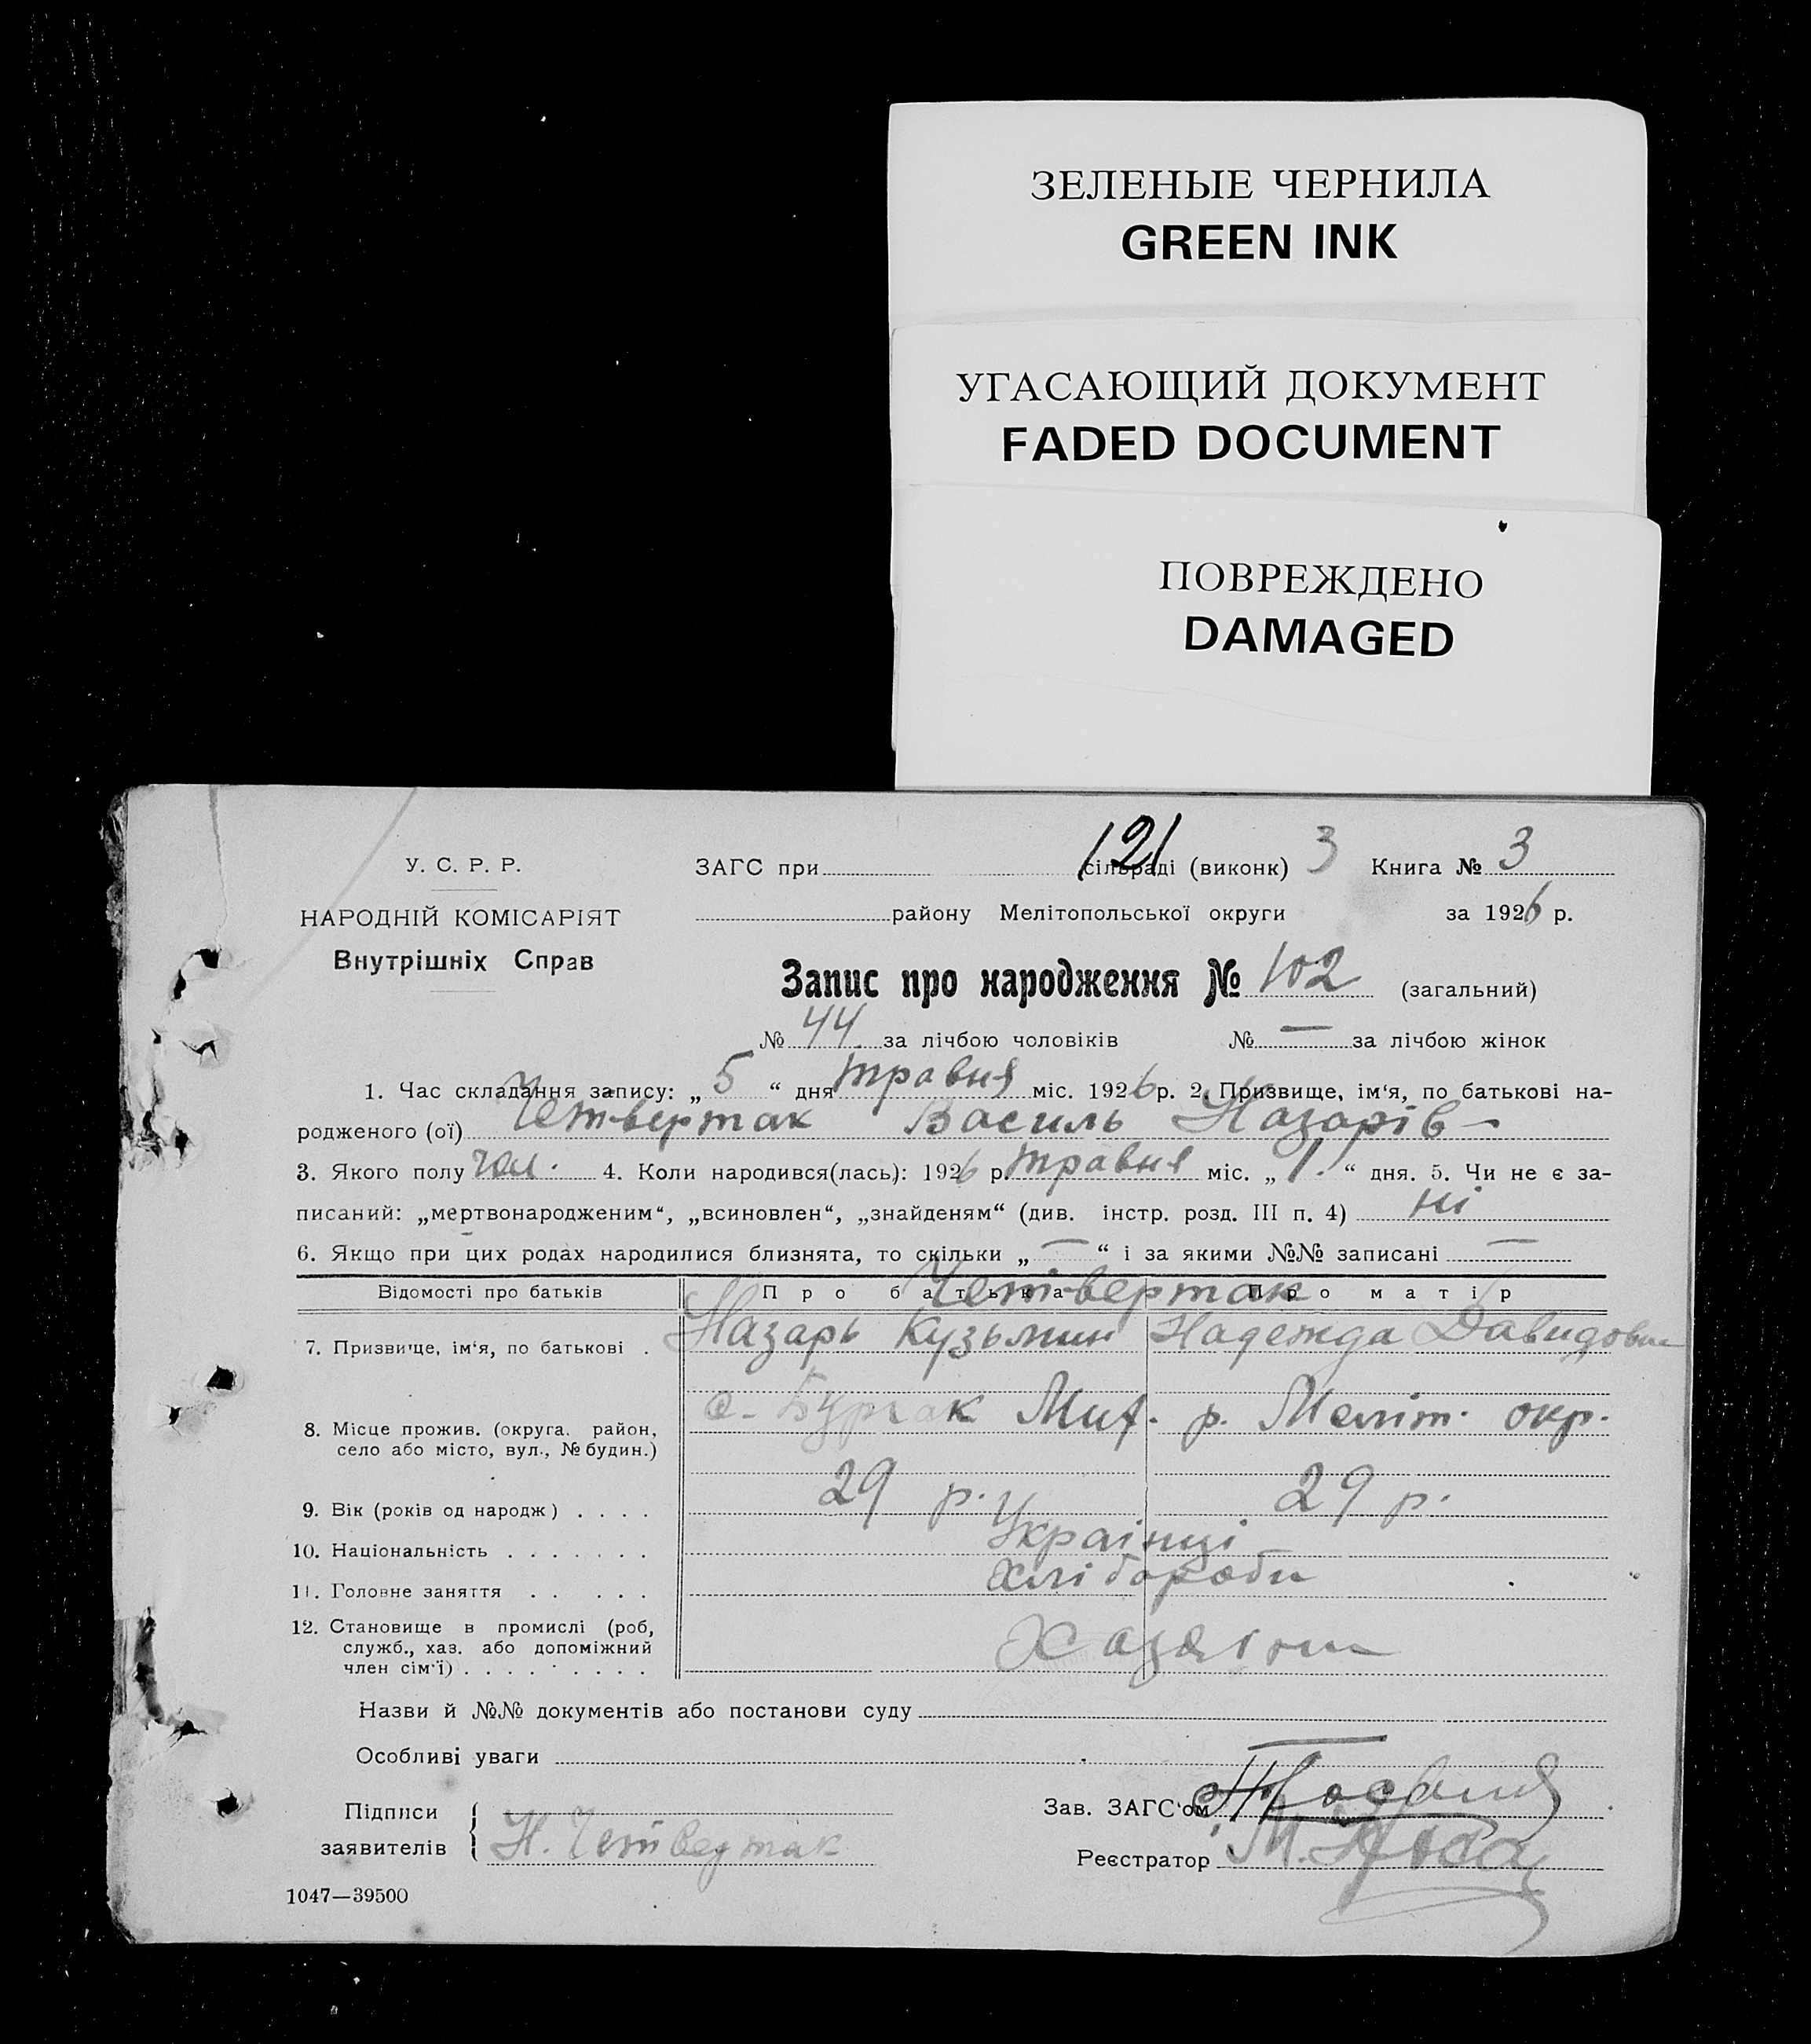 ЗЕЛЕНЫЕ ЧЕРНИЛА
GREEN INK
УГАСАЮЩИЙ ДОКУМЕНТ
FADED DOCUMENT
ПОВРЕЖДЕНО
DAMAGED
121
У. С. Р. Р.
НАРОДНІЙ КОМІСАРІЯТ
Внутрішніх Справ
ЗАГС при сільраді (виконк) 3 Книга № 3
району Мелітопольської округи за 1926 р.
Запис про народження № 102 (загальний)
№ 44 за лічбою чоловіків № — за лічбою жінок
1. Час складання запису: „ 5 “ дня травня міс. 1926 р. 2. Призвище, ім‘я, по батькові на-
родженого (ої) Четвертак Василь Назарів —
3. Якого полу чол. 4. Коли народився(лась): 1926 р. травня міс. „ 1. “ дня. 5. Чи не є за-
писаний: „мертвонародженим“, „всиновлен“, „знайденям“ (див. інстр. розд. III п. 4) ні
6. Якщо при цих родах народилися близнята, то скільки „ — “ і за якими №№ записані —
Відомості про батьків Про батька Про матір
Четвертак
7. Призвище, ім‘я, по батькові . Назарь Кузьмин Надежда Давидовн
8. Місце прожив. (округа. район,
село або місто, вул., № будин.) с. Бурчак Мих. р. Меліт. окр.
9. Вік (років од народж) . . . . 29 р. 29 р.
10. Національність . . . . . . . Українці
11. Головне заняття . . . . . Хлібороби
12. Становище в промислі (роб,
служб., хаз. або допоміжний
член сім‘ї) . . . . . . . . .
Назви й №№ документів або постанови суду
Особливі уваги
Підписи
заявителів Н. Четвертак
Зав. ЗАГС‘ом
Реєстратор
1047—39500